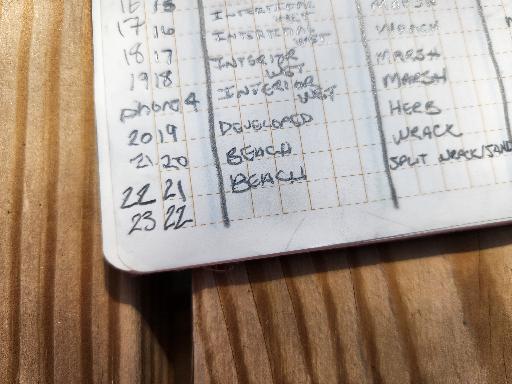 16 15 INTERTIDAL MARSH
WET
17 16 INTERTIDAL WRACK
WET
18 17 INTERIOR MARSH
WET
19 18 INTERIOR MARSH
WET
phono 4 HERB
20 19 DEVELOPED WRACK
21 20 BEACH SPLIT WRACK/SAND
22 21 BEACH
23 22